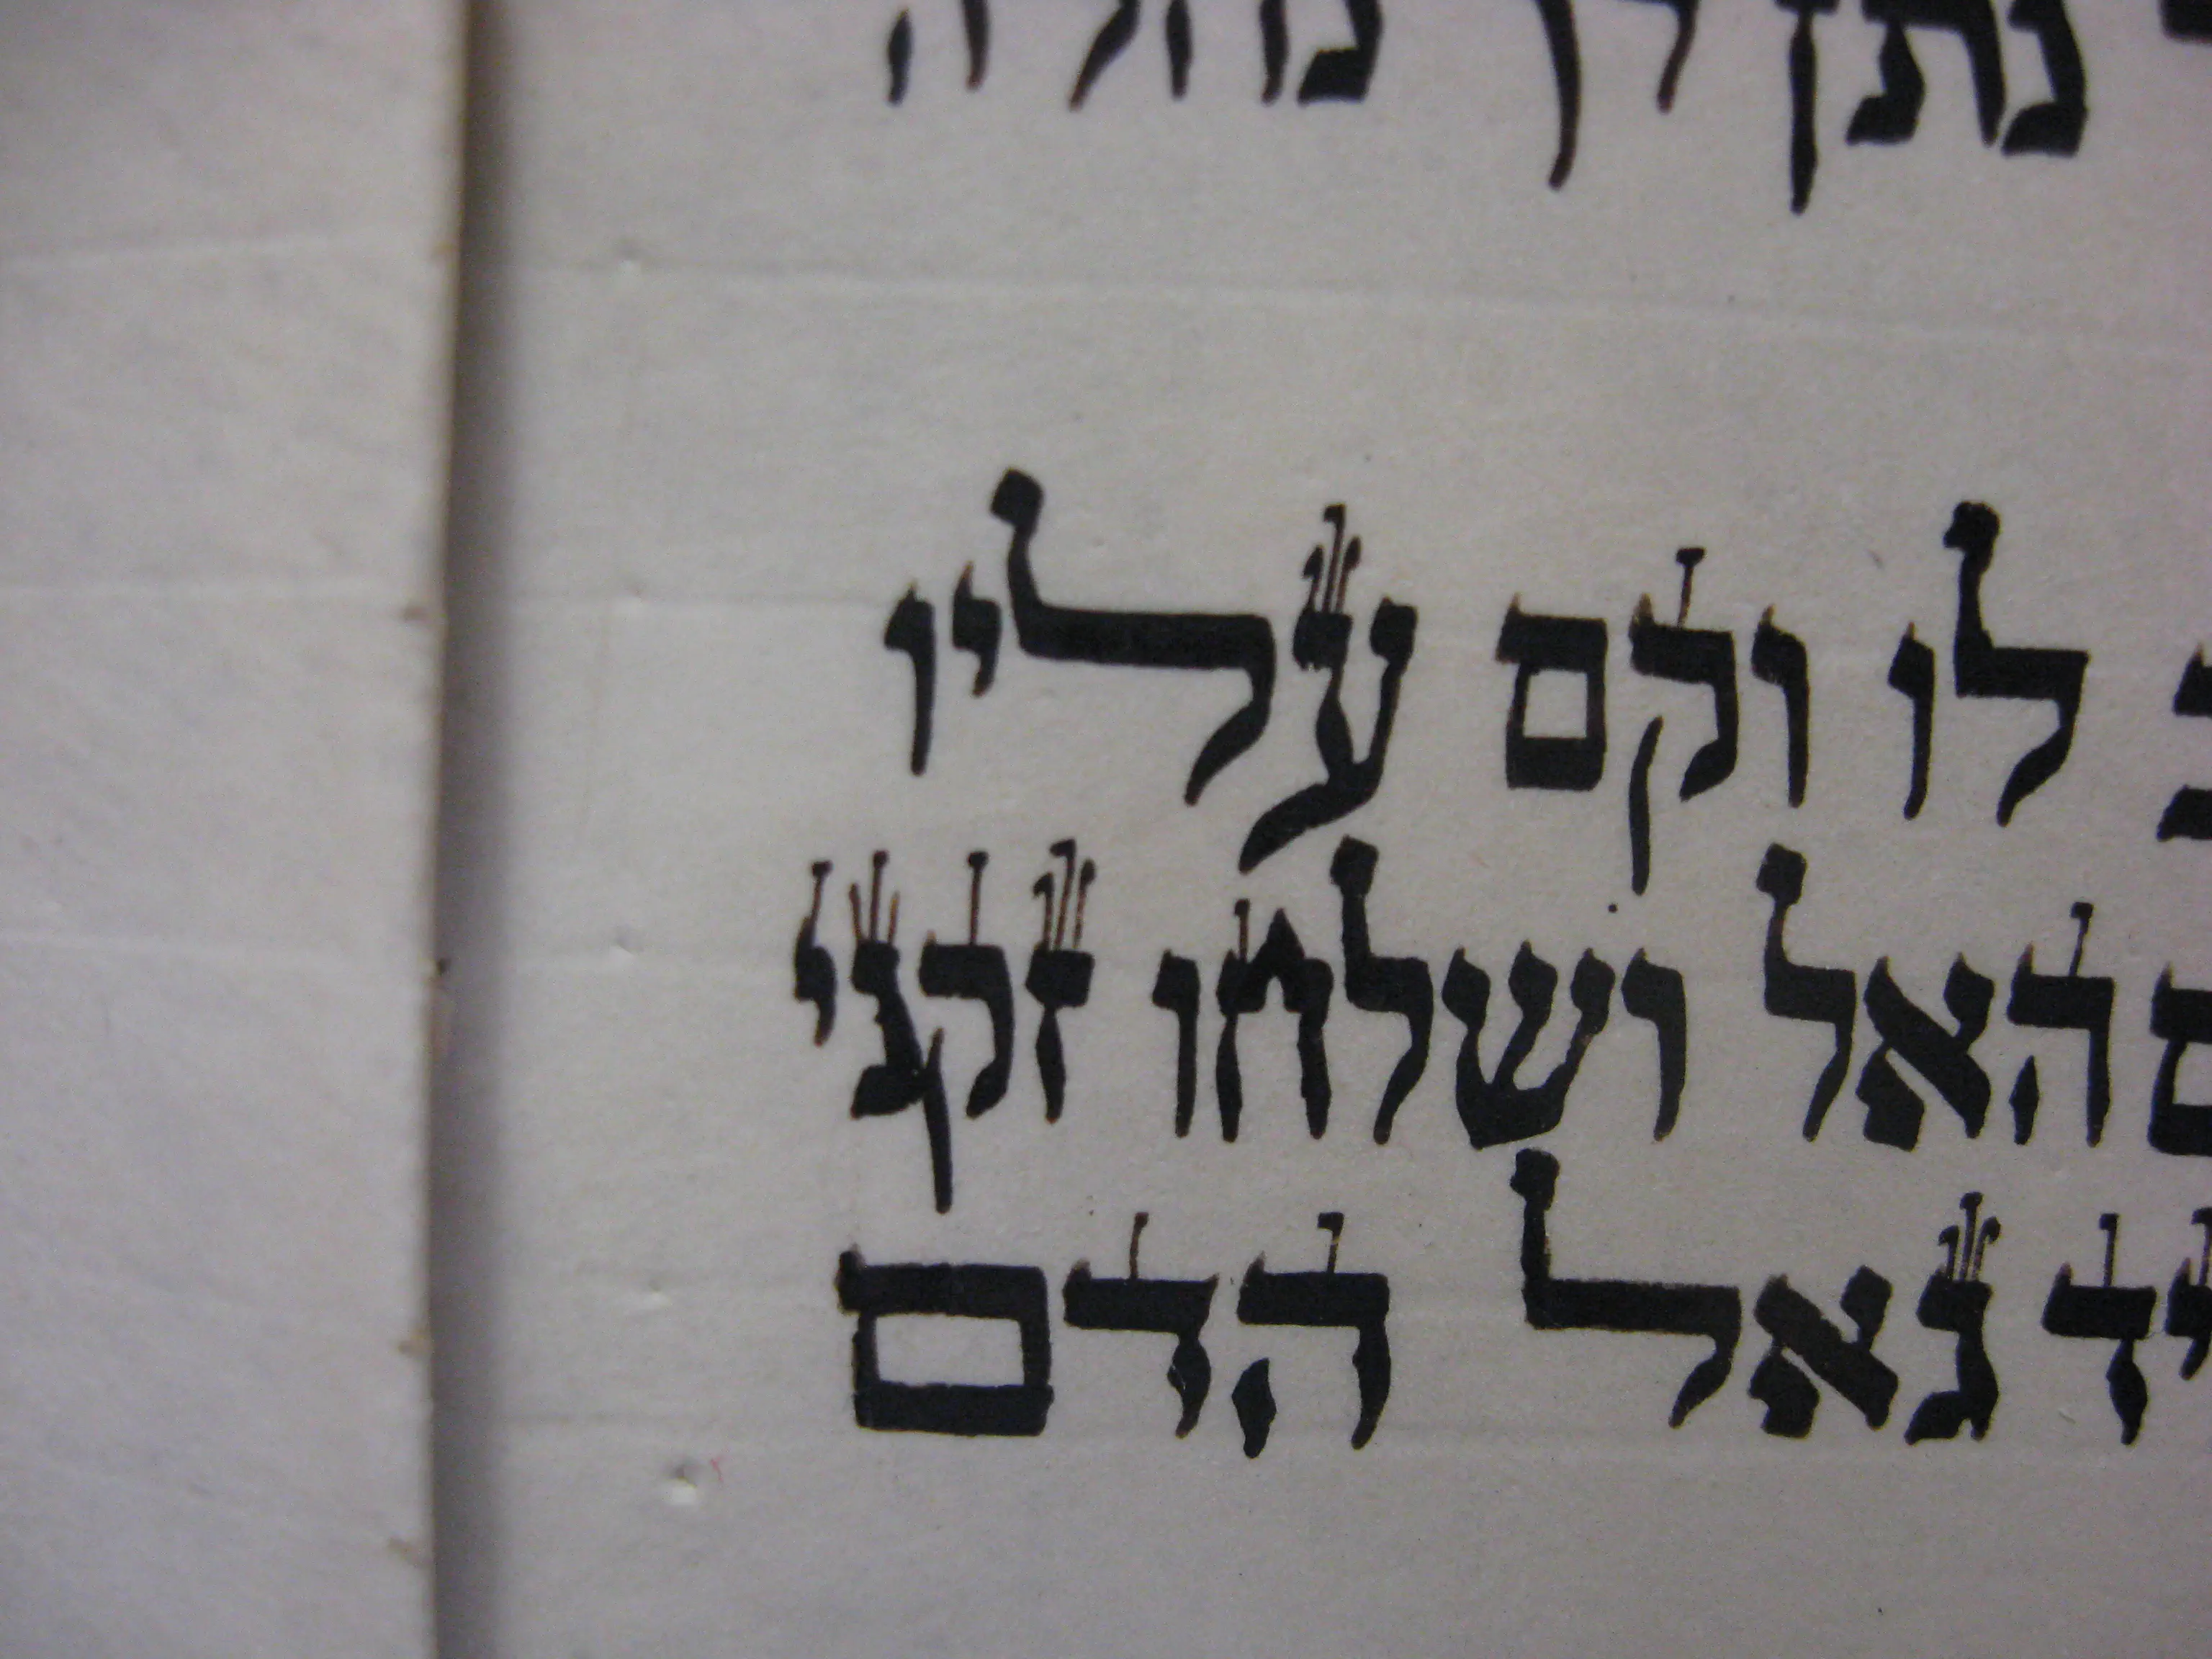 נתן לך נחלה
לו וקם עליו
האל ושלחו זקני
גאל הדם